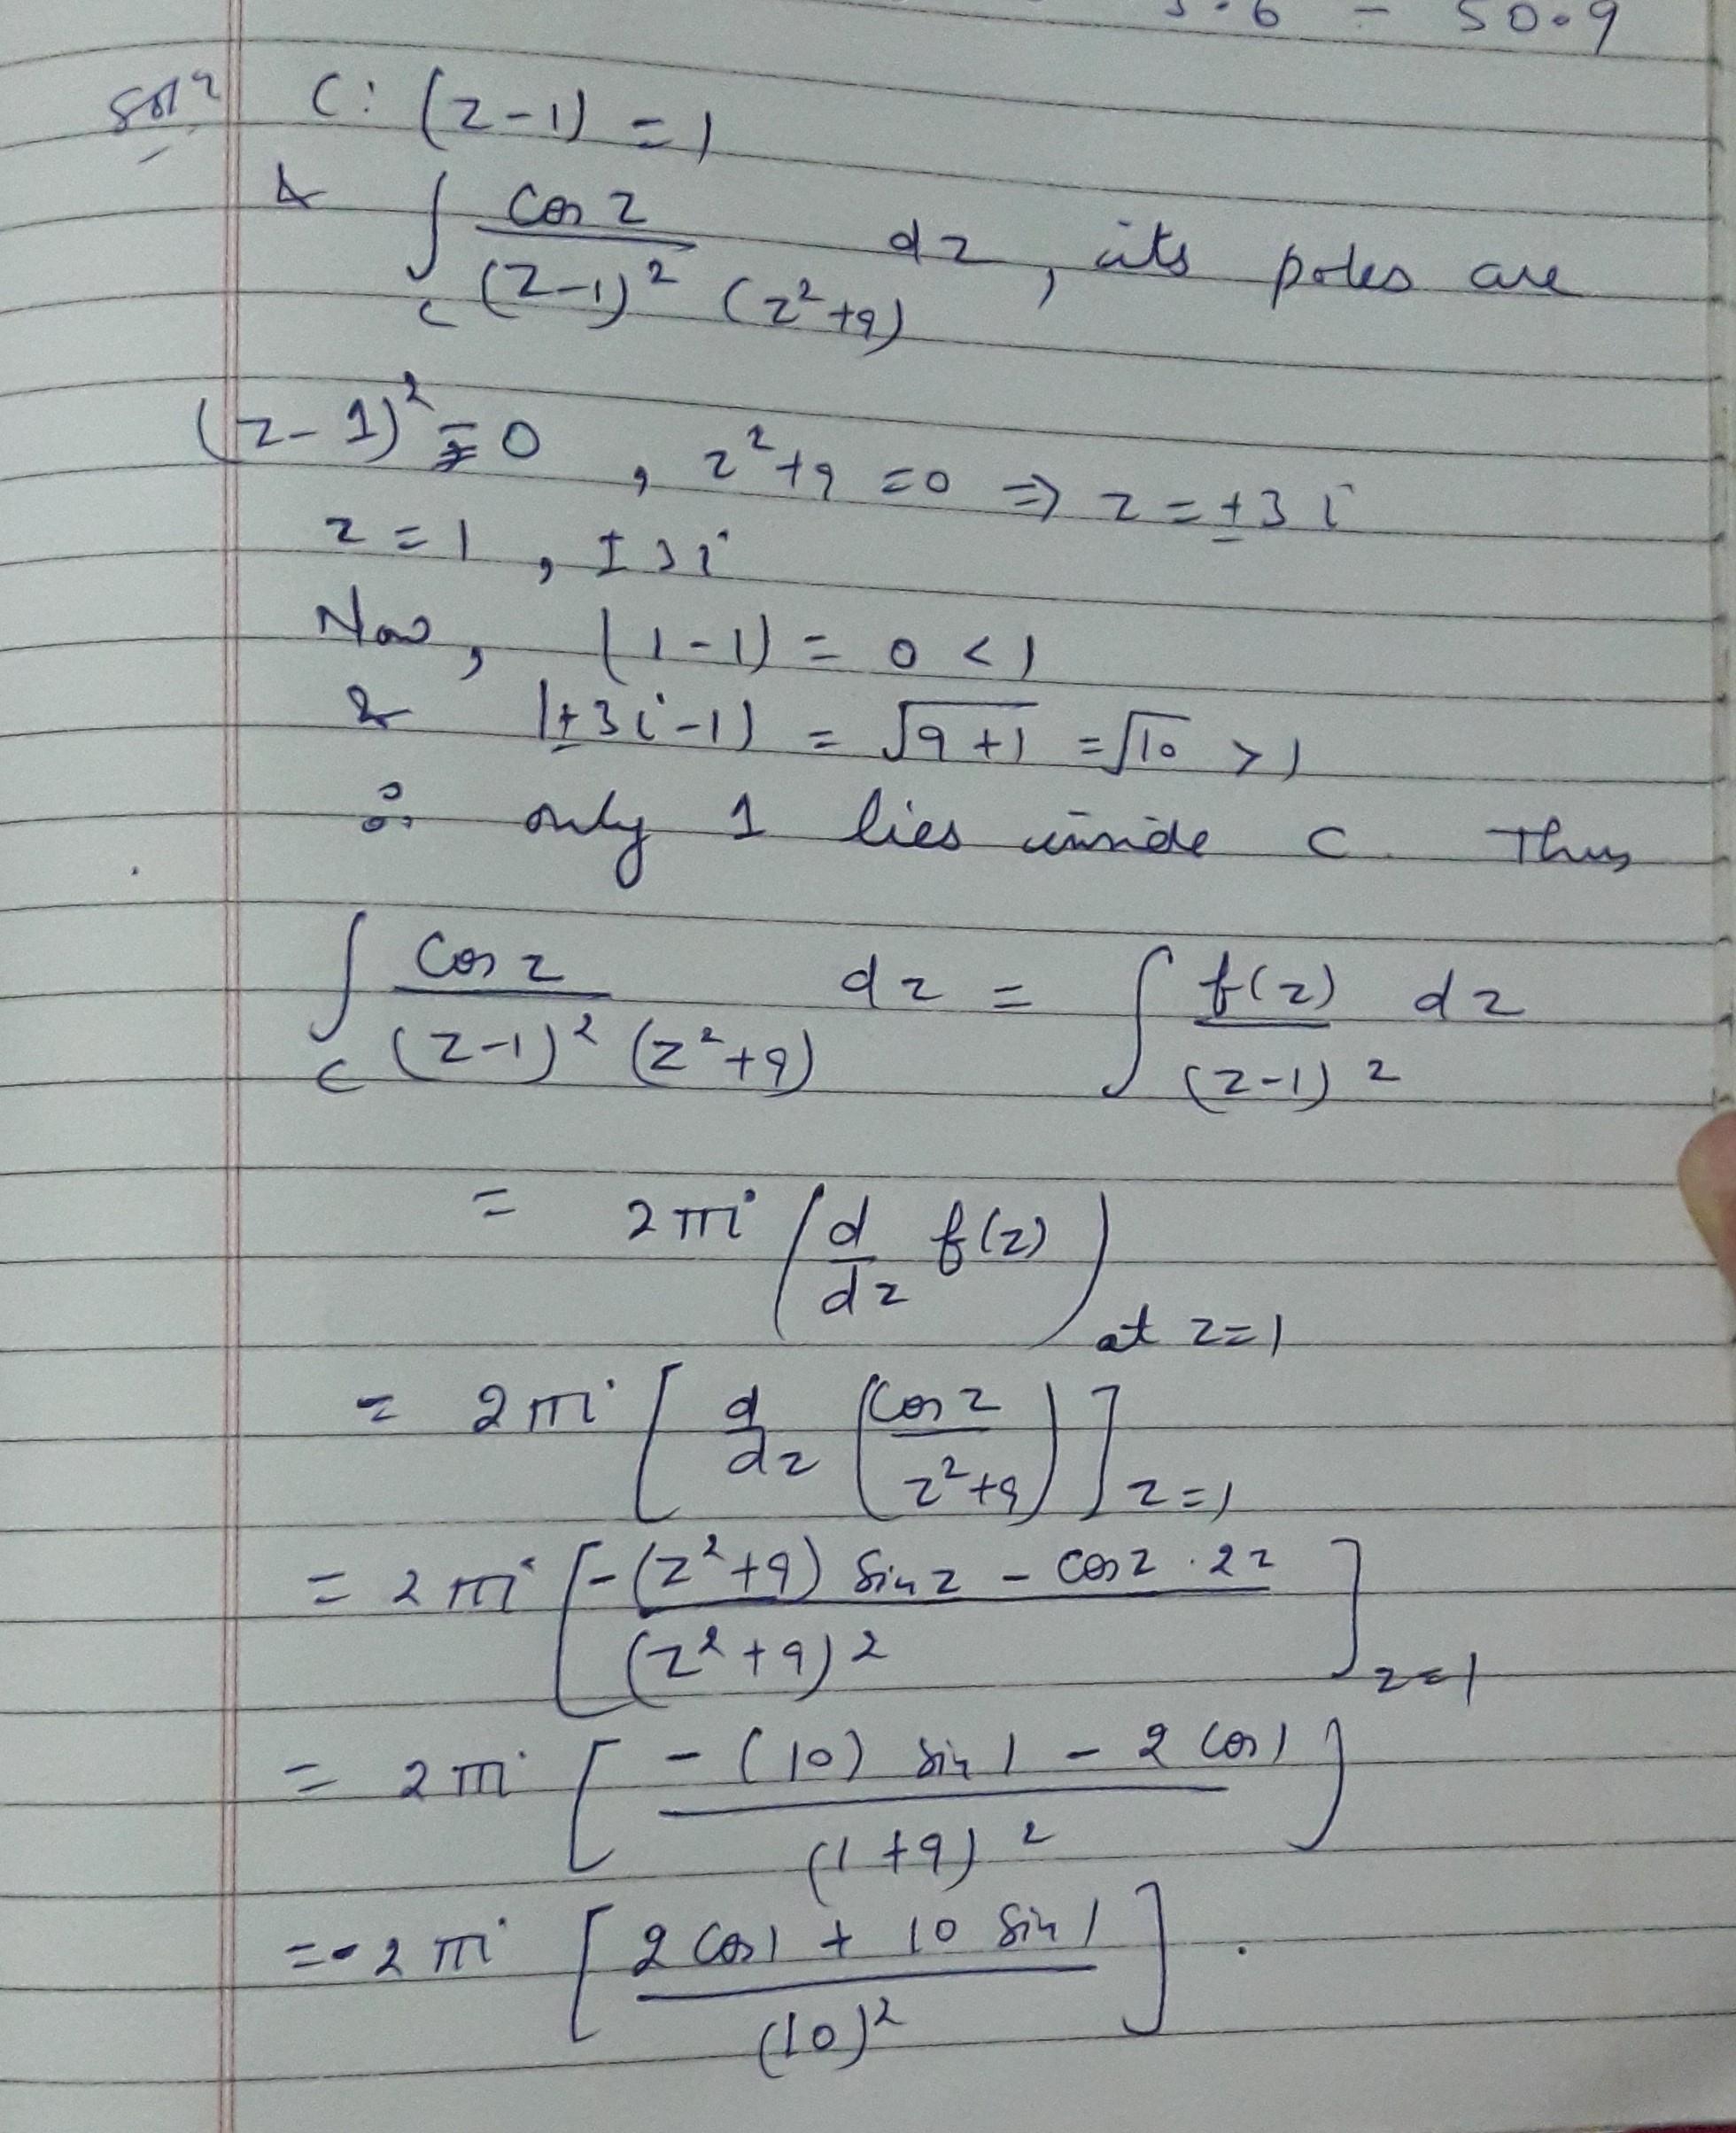 - 50.9
Solⁿ C: |z-1| = 1
& ∫_C cos z / (z-1)² (z²+9) dz, its poles are
(z-1)² = 0, z²+9 = 0 ⇒ z = ±3i
z = 1, ±3i
Now, |1-1| = 0 < 1
& |±3i-1| = √9+1 = √10 > 1
∴ only 1 lies inside C. Thus
∫_C cos z / (z-1)² (z²+9) dz = ∫ f(z) / (z-1)² dz
= 2πi (d/dz f(z)) at z=1
= 2πi [d/dz (cos z / z²+9)] z=1
= 2πi [-(z²+9) sin z - cos z · 2z / (z²+9)²] z=1
= 2πi [-(10) sin 1 - 2 cos 1 / (1+9)²]
= -2πi [2 cos 1 + 10 sin 1 / (10)²].